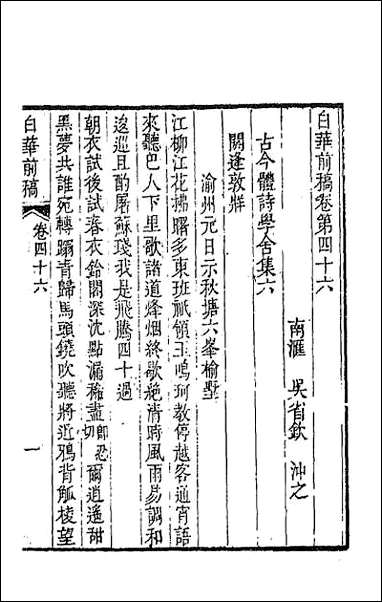 白華前稿卷第四十六
南滙 吳省欽 沖之
古今體詩學舍集六
閼逢敦牂
渝州元日示秋塘六峯榆墅
江柳江花拂曙多東班祇領玉鳴珂教停越客通宵語
來聽巴人下里歌諾道烽烟終歇絶清時風雨易調和
逡巡且酌屠蘇琖我是飛騰四十過
朝衣試後試春衣鈴閣深沈點漏稀盡如卽忍爾逍遙甜
黑夢共誰宛轉蹋青歸馬頭鐃吹聽將近鴉背觚棱望
白華前稿 卷四十六 一